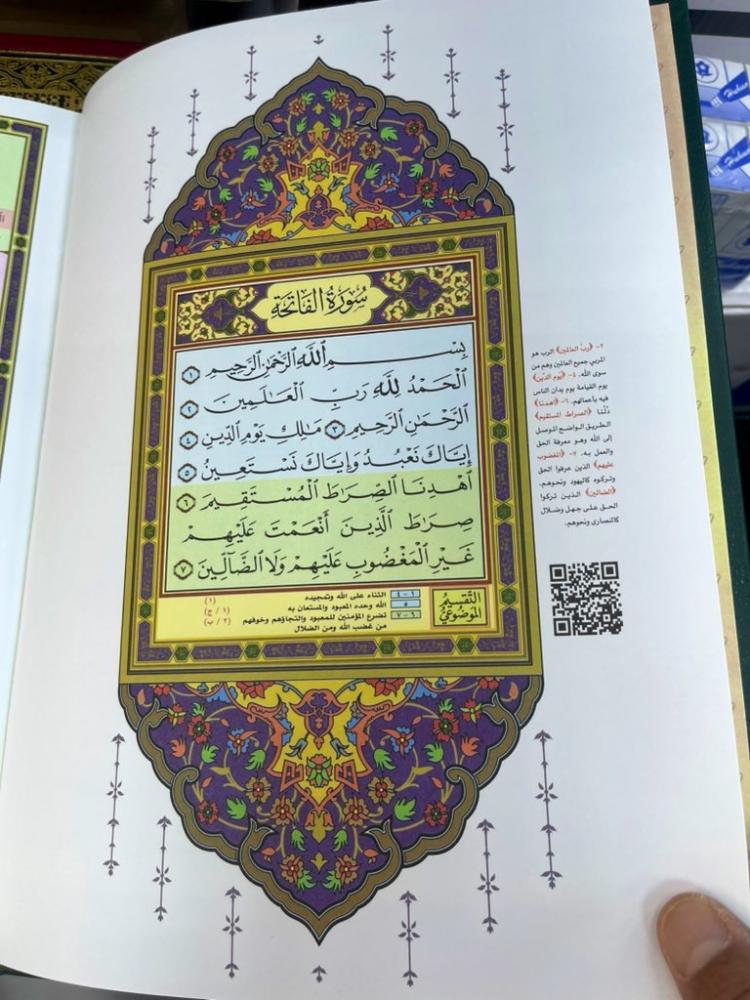 سُورَةُ الفَاتِحَةِ
بِسْمِ اللَّهِ الرَّحْمَٰنِ الرَّحِيمِ ١
الْحَمْدُ لِلَّهِ رَبِّ الْعَالَمِينَ ٢
الرَّحْمَٰنِ الرَّحِيمِ ٣ مَالِكِ يَوْمِ الدِّينِ ٤
إِيَّاكَ نَعْبُدُ وَإِيَّاكَ نَسْتَعِينُ ٥
اهْدِنَا الصِّرَاطَ الْمُسْتَقِيمَ ٦
صِرَاطَ الَّذِينَ أَنْعَمْتَ عَلَيْهِمْ
غَيْرِ الْمَغْضُوبِ عَلَيْهِمْ وَلَا الضَّالِّينَ ٧
التَّقسِيمُ
المَوضُوعيُّ
١ - ٤ الثناء على الله وتمجيده (١)
٥ الله وحده المعبود والمستعان به (١ / ج)
٦ - ٧ تضرع المؤمنين للمعبود والتجاؤهم وخوفهم (٢ / ب)
من غضب الله ومن الضلال
٢- ﴿رب العالمين﴾ الرب هو
المربي جميع العالمين وهم من
سوى الله. ٤- ﴿يوم الدين﴾
يوم القيامة يوم يدان الناس
فيه بأعمالهم. ٦- ﴿اهدنا﴾
دُلَّنا ﴿الصراط المستقيم﴾
الطريق الواضح الموصل
إلى الله وهو معرفة الحق
والعمل به. ٧- ﴿المغضوب
عليهم﴾ الذين عرفوا الحق
وتركوه كاليهود ونحوهم.
﴿الضالين﴾ الذين تركوا
الحق على جهل وضلال
كالنصارى ونحوهم.